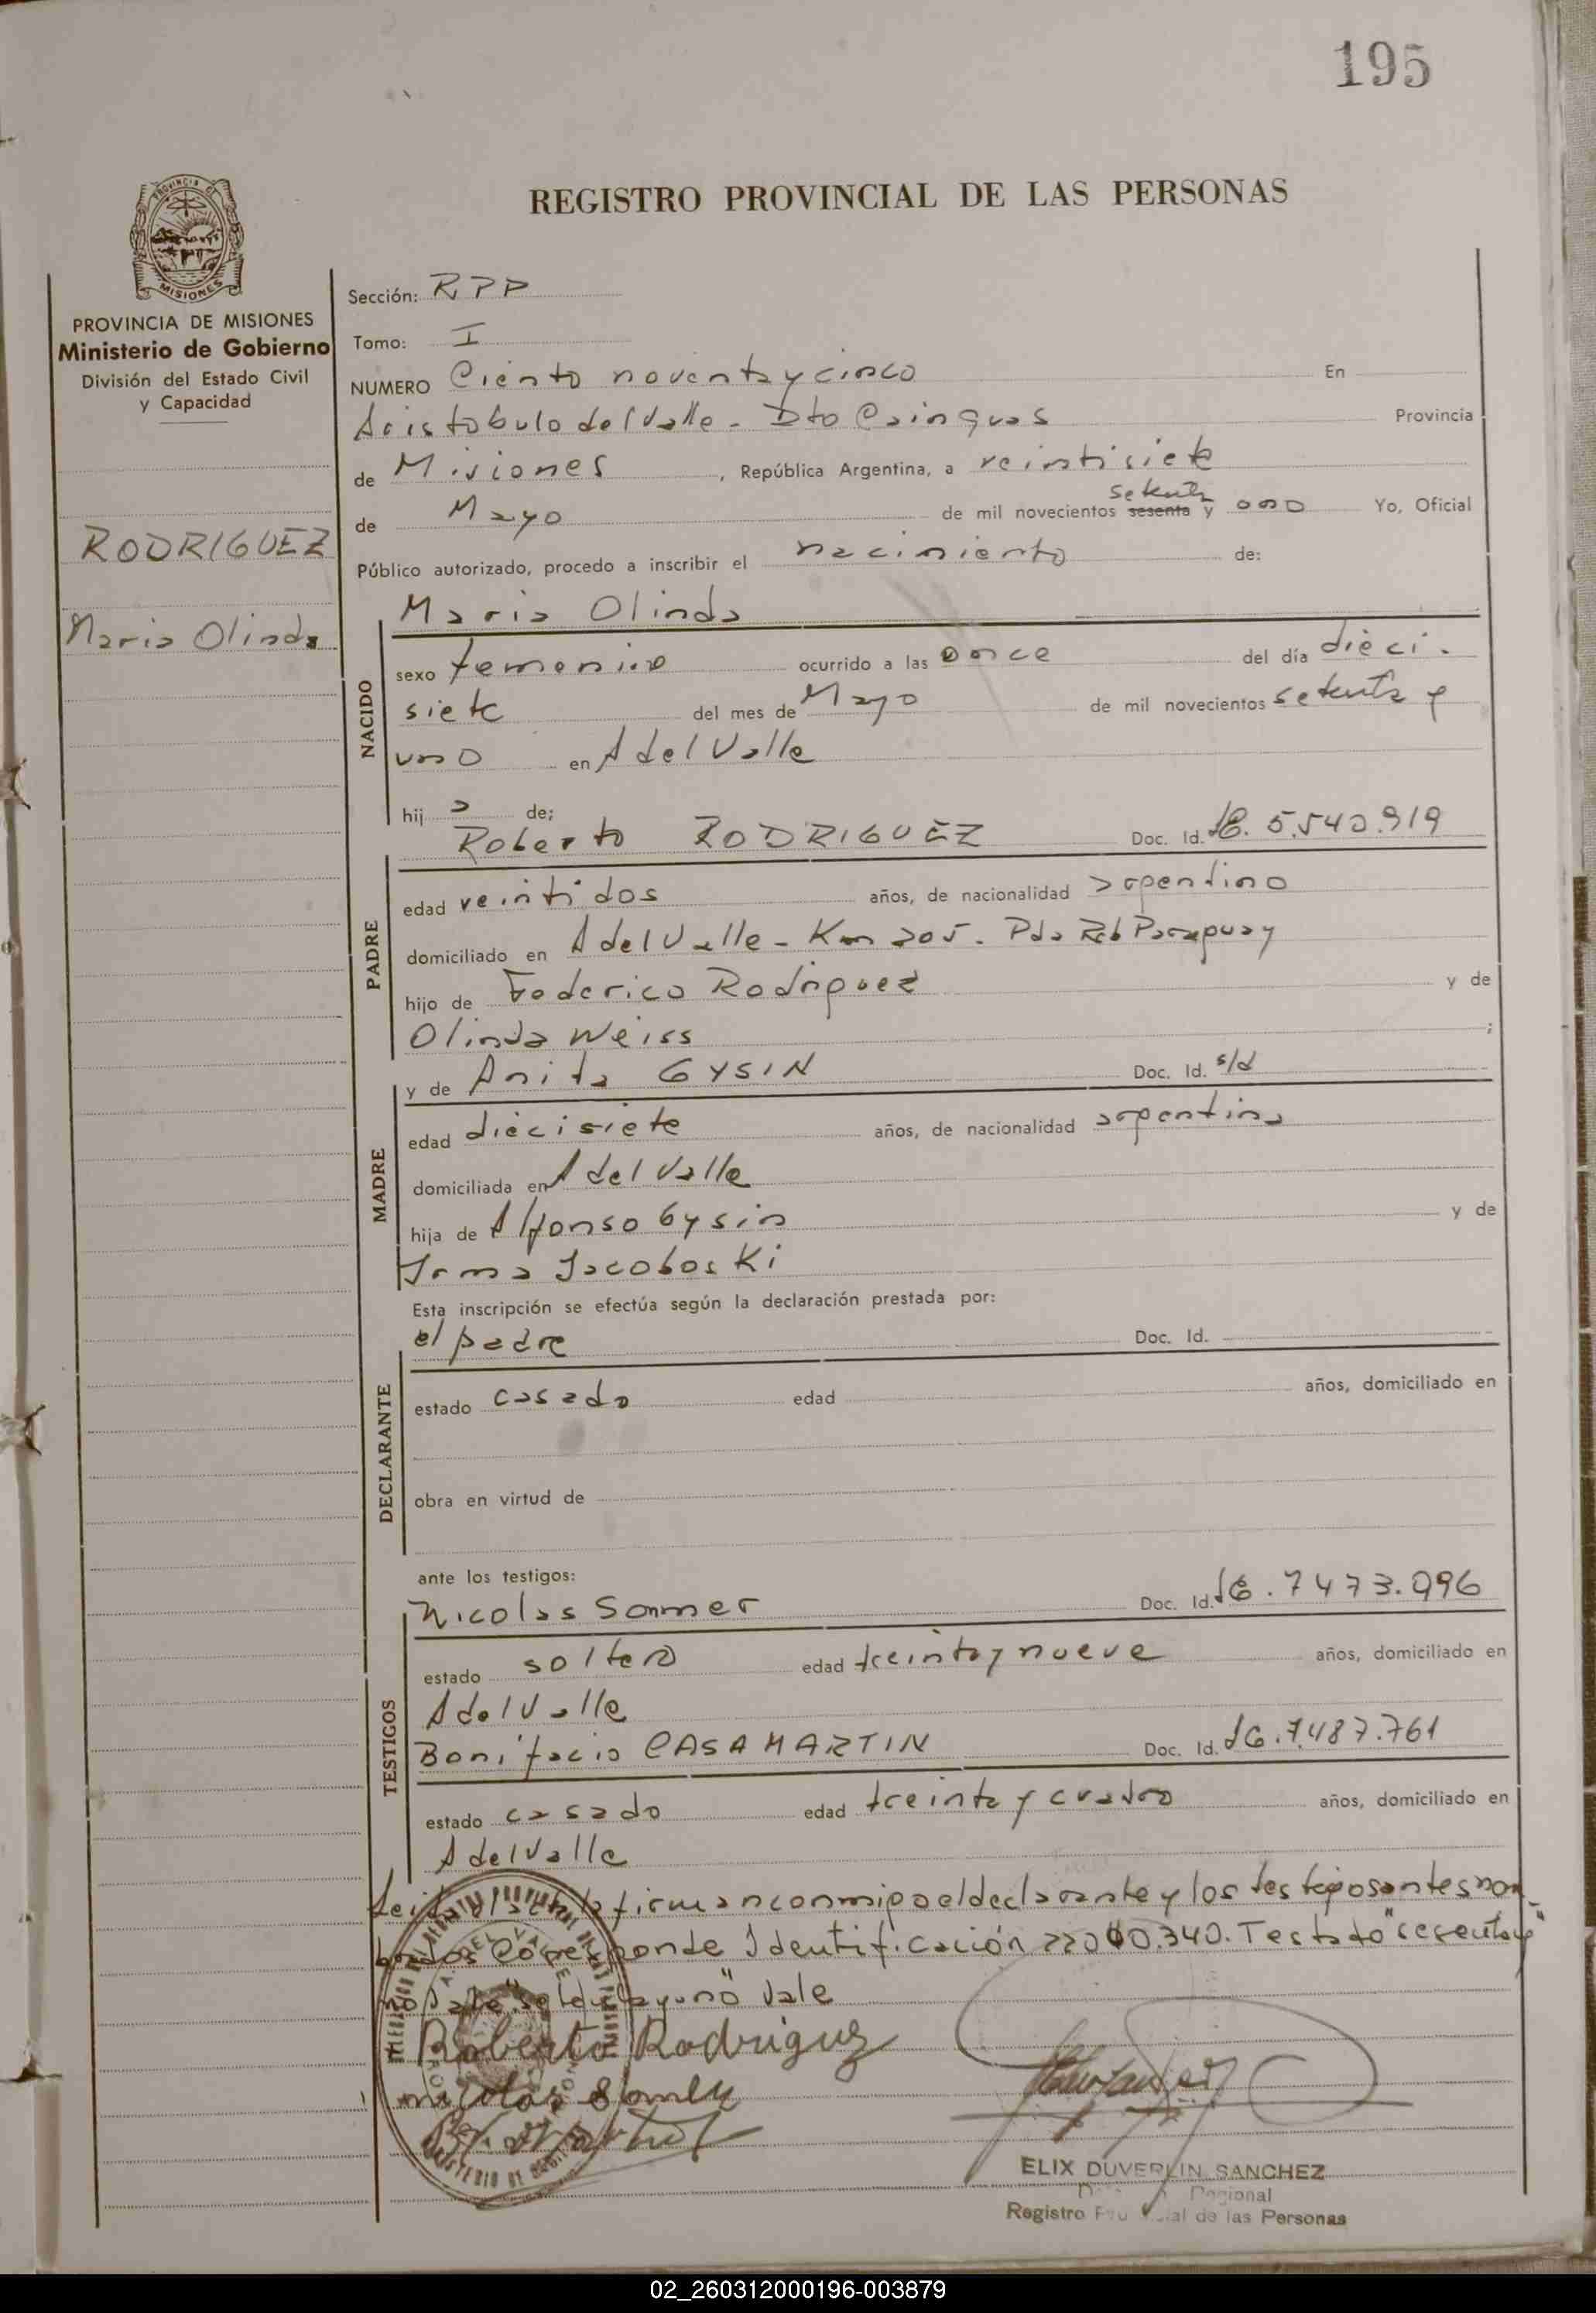 195
REGISTRO PROVINCIAL DE LAS PERSONAS
MISIONES
PROVINCIA DE MISIONES
Ministerio de Gobierno
División del Estado Civil
y Capacidad
RODRIGUEZ
Maria Olinda
Sección: RPP
Tomo: I
NUMERO Ciento noventa y cinco En
Aristobulo del Valle - Dto Cainguas Provincia
de Misiones, República Argentina, a veintisiete
setenta
de Mayo de mil novecientos sesenta y uno Yo, Oficial
Público autorizado, procedo a inscribir el nacimiento de:
Maria Olinda
NACIDO
sexo femenino ocurrido a las once del día dieci-
siete del mes de Mayo de mil novecientos setenta y
uno en A del Valle
hija de;
Roberto RODRIGUEZ Doc. Id. 5.540.919
PADRE
edad veintidos años, de nacionalidad argentino
domiciliado en A del Valle - Km 205 - Pda Rcb Paraguay
hijo de Federico Rodriguez y de
Olinda Weiss ;
y de Anita GYSIN Doc. Id. s/d
MADRE
edad diecisiete años, de nacionalidad argentina
domiciliada en A del Valle
hija de Alfonso Gysin y de
Irma Jacoboski
Esta inscripción se efectúa según la declaración prestada por:
el padre Doc. Id.
DECLARANTE
estado casado edad años, domiciliado en
obra en virtud de
ante los testigos:
Nicolas Sommer Doc. Id. 7473.996
TESTIGOS
estado soltero edad treinta y nueve años, domiciliado en
A del Valle
Bonifacio CASAMARTIN Doc. Id. 7.487.761
estado casado edad treinta y cuatro años, domiciliado en
A del Valle
Leida el acta la firman conmigo el declarante y los testigos antes nom-
brados Corresponde Identificación 22000.340. Testado "sesenta y"
no vale "setenta y uno" Vale
Roberto Rodriguez
nicolas Somer
ELIX DUVERLIN SANCHEZ
Regional
Registro Provincial de las Personas
02_260312000196-003879